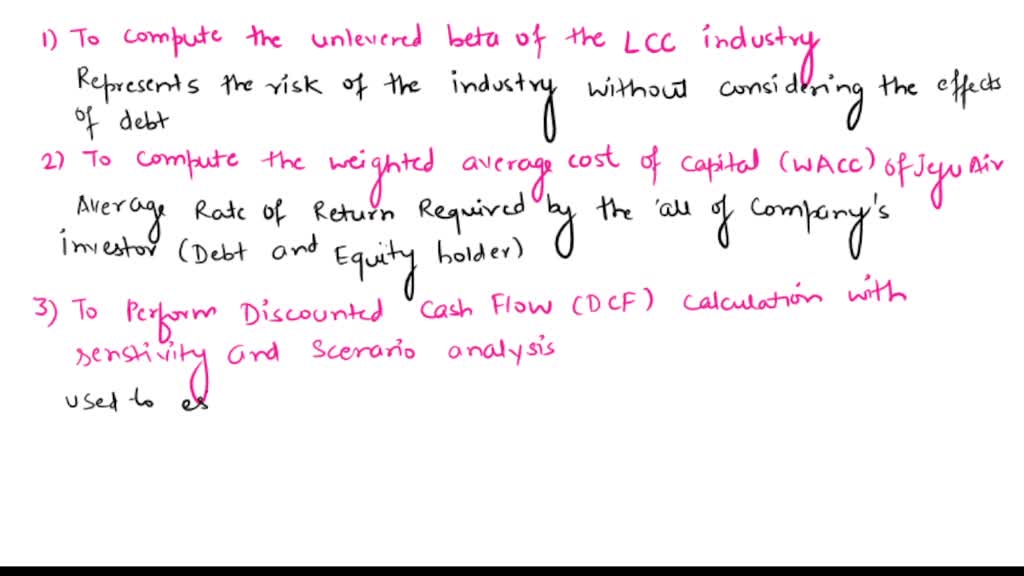 1) To compute the unlevered beta of the LCC industry
Represents the risk of the industry without considering the effects
of debt
2) To compute the weighted average cost of capital (WACC) of Jeju Air
Average Rate of Return Required by the all of Company's
investor (Debt and Equity holder)
3) To Perform Discounted Cash Flow (DCF) calculation with
senstivity and Scerario analysis
used to es